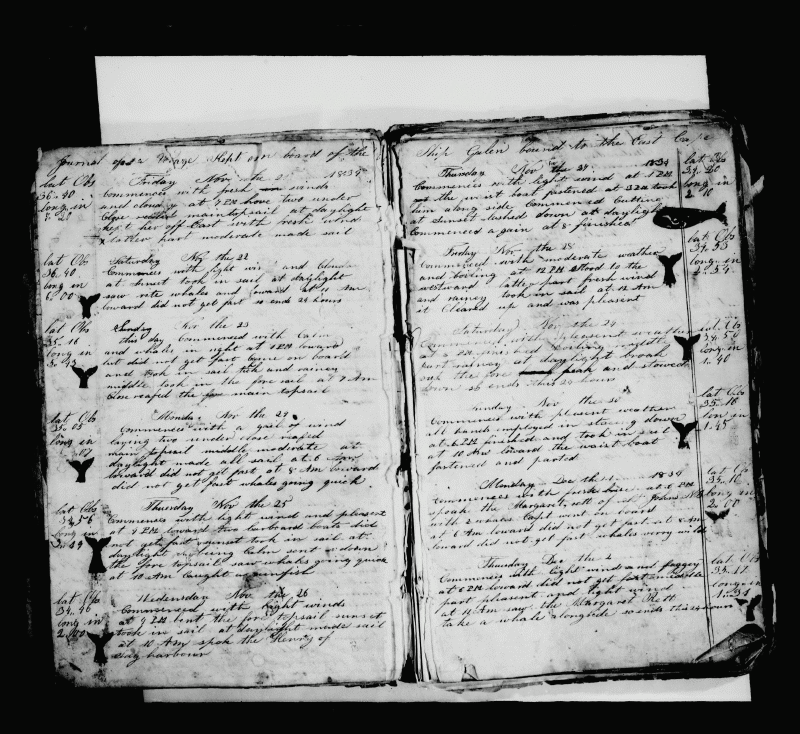 Journal of a Voyage Kept on board of the
lat Obs
36.40
long in
Friday Nov the 2 1834
Commences with fresh winds
and cloudy at 7 PM hove two under
Close reefed maintopsail at daylight
kept her off East with fresh winds
latter part moderate made sail
lat Obs
36.40
long in
0.00
Saturday Nov the 22
Commences with fresh wind and Cloudy
at sunset took in sail at daylight
saw rite whales and
loward did not get fast so ends 24 hours
lat Obs
35.16
long in
Sunday Nov the 23
this day Commenced with Calm
and whales in sight at 1 PM lowered
but did not get fast Come on board
and took in sail thik and rainey
middle took in the fore sail at 7 AM
Close reaped the fore main topsail
lat Obs
35.05
long in
Monday Nov the 24
Commences with a gail of wind
laying two under close reaped
main topsail middle moderate at
daylight made all sail at 6 AM
lowared did not get fast at 8 AM lowared
did not get fast whales going quick
lat Obs
34.56
long in
Thursday Nov the 25
Commences with light wind and plesent
at 4 PM lowared the larboard boats did
not get fast sunset took in sail at
daylight it being Calm sent down
the fore topsail saw whales going quick
at 10 AM Caught sunfish
lat Obs
34.46
long in
2.00
Widensday Nov the 26
Commenced with light winds
at 4 PM bent the fore topsail sunset
took in sail at daylight made sail
at 10 AM spoke the Henry of
Sag harbour
Ship Galen bound to the East Cape
Thursday Nov the 27 1834
Commences with light wind at 1 PM
the waist boat fastened at 3 PM took
him along side Commenced Cutting
at sunset lashed down at daylight
Commenced again at 8 finished
lat Obs
34.20
long in
2.10
Friday Nov the 28
Commenced with moderate weather
and boiling at 12 PM Stood to the
westward latter part fresh wind
and rainey took in sail at 12 AM
it Cleared up and was plesent
lat Obs
34.53
long in
2.34
Saturday Nov the 29
Commences with plesent weather
at 6 PM finished boiling middle
part rainey at daylight broak
up the fore peak and stowed
down so ends this 24 hours
lat Obs
34.50
long in
1.40
Sunday Nov the 30
Commenced with plesent weather
all hands employed in stowing down
at 6 PM finished and took in sail
at 10 AM lowared the waist boat
fastened and parted
lat Obs
35.18
lon in
1.45
Monday Dec the 1 1834
Commences with fresh breeze at 6 PM
speak the Margarett of
with 2 whales Capt went on board
at 6 AM lowared did not get fast at 8 AM
lowared did not get fast whales verry wild
lat Obs
34.10
long in
2.00
Thursday Dec the 2
Commences with light winds and foggey
at 6 PM lowared did not get fast middle
part plesent and light wind
at 10 AM saw the Margaret Scott
take a whale alongside so ends this 24 hours
lat Obs
34.17
long in
1.31